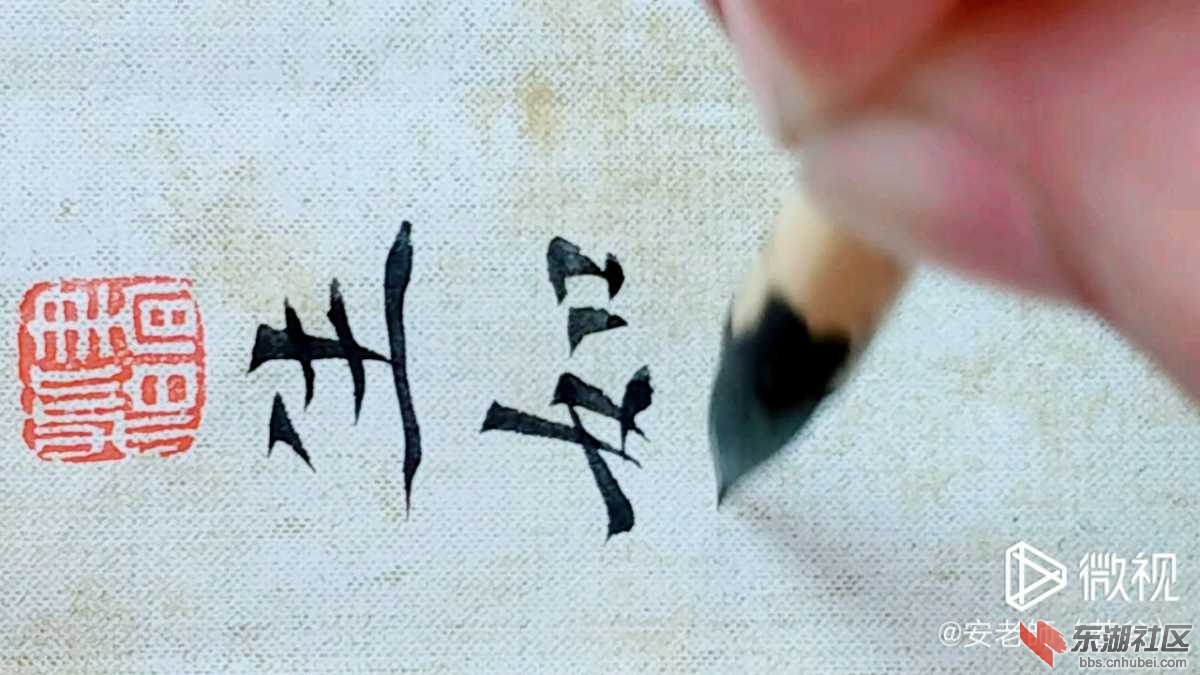 生如
微视
@安老
东湖社区
bbs.cnhubei.com